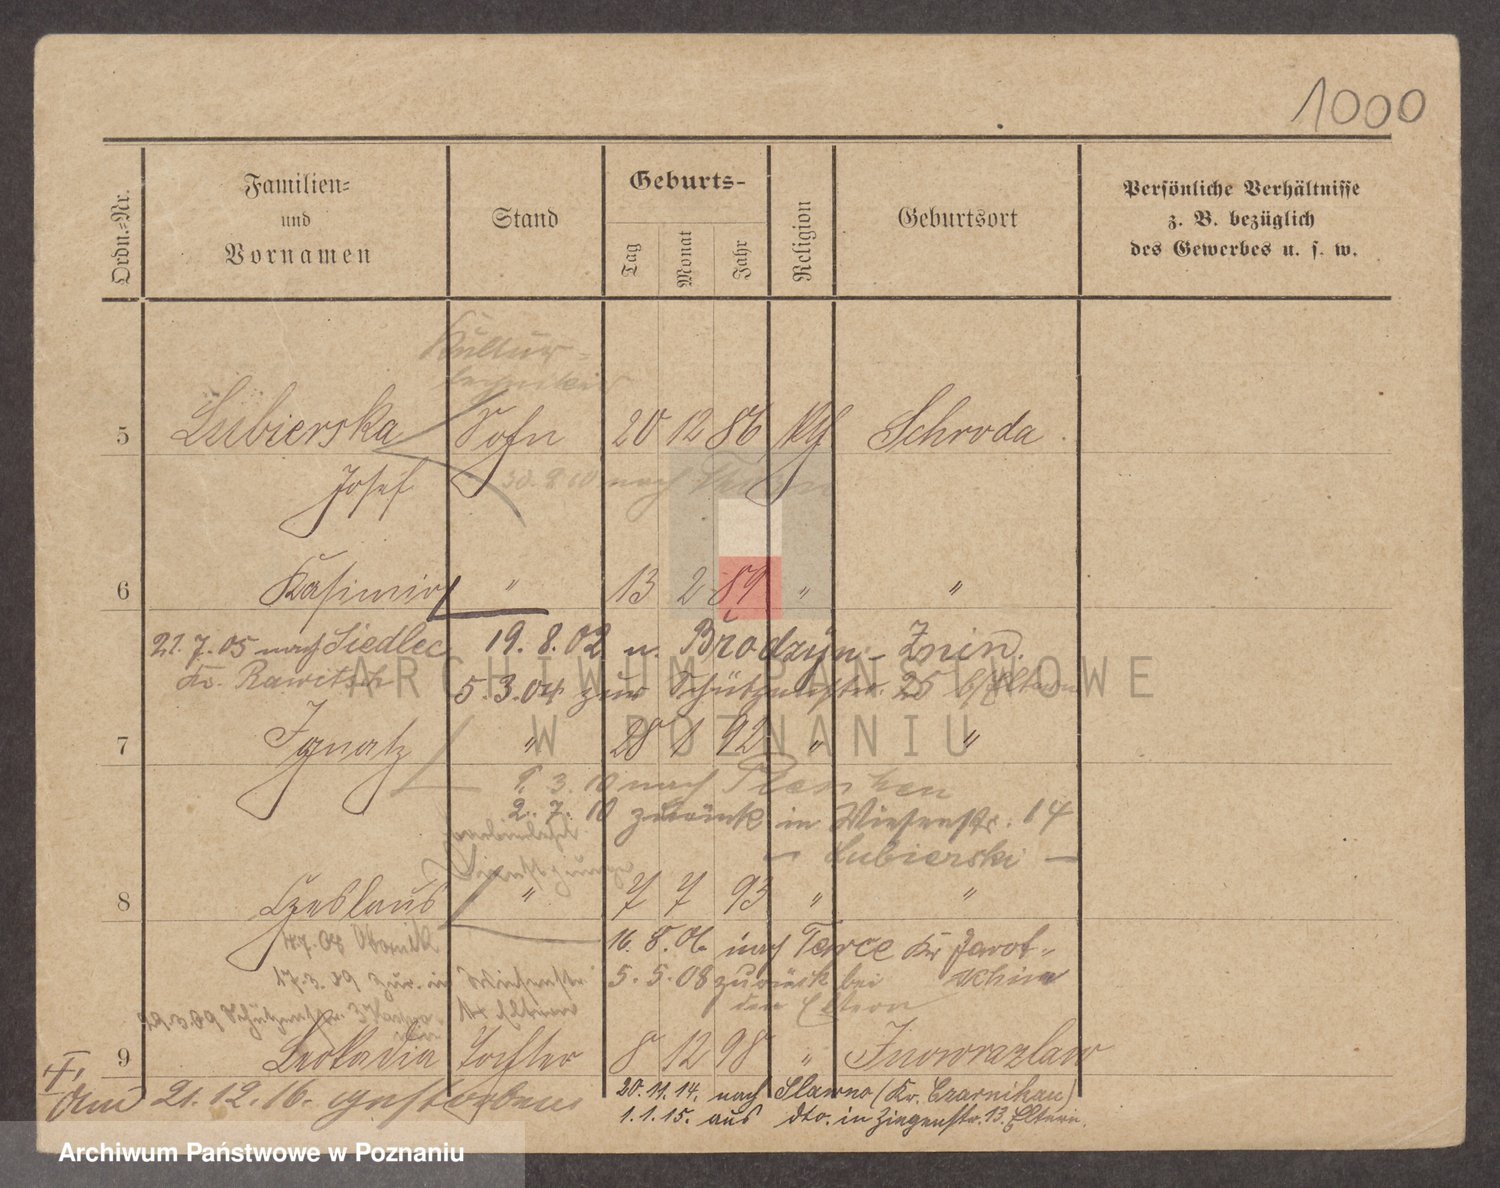 1000
Ordn.-Nr.
Familien-
und
Vornamen
Stand
Geburts-
Tag
Monat
Jahr
Religion
Geburtsort
Persönliche Verhältnisse
z. B. bezüglich
des Gewerbes u. s. w.
Kultur-
techniker
5 Lubierska Sohn 20 12 86 Schroda
Josef 30. 9. 10 nach
6 Kasimir " 13 2 89 " "
22. 7. 05 nach Siedlec 19. 8. 02 n. Brodzyn - Znin.
Kr. Rawitsch 5. 3. 04 zur Schützenstr. 25 b/Eltern
7 Ignatz " 28 1 92 " "
3. 10 nach
2. 7. 10 zurück in Wiesenstr. 14
Lubierski
8 Czeslaus " 7 7 93 " "
16. 8. 06 nach Tarce Kr Jarot-
schin
5. 5. 08 zurück bei
den Eltern
17. 3. 09 zur. in Wiesenstr.
14 Eltern
9 Leokadia Tochter 8 12 98 " Inowrazlaw
20. 11. 14. nach Slawno (Kr. Czarnikau)
Am 21. 12. 16. gestorben
1. 1. 15. aus dto. in Ziegenstr. 13. Eltern.
ARCHIWUM PAŃSTWOWE
W POZNANIU
Archiwum Państwowe w Poznaniu